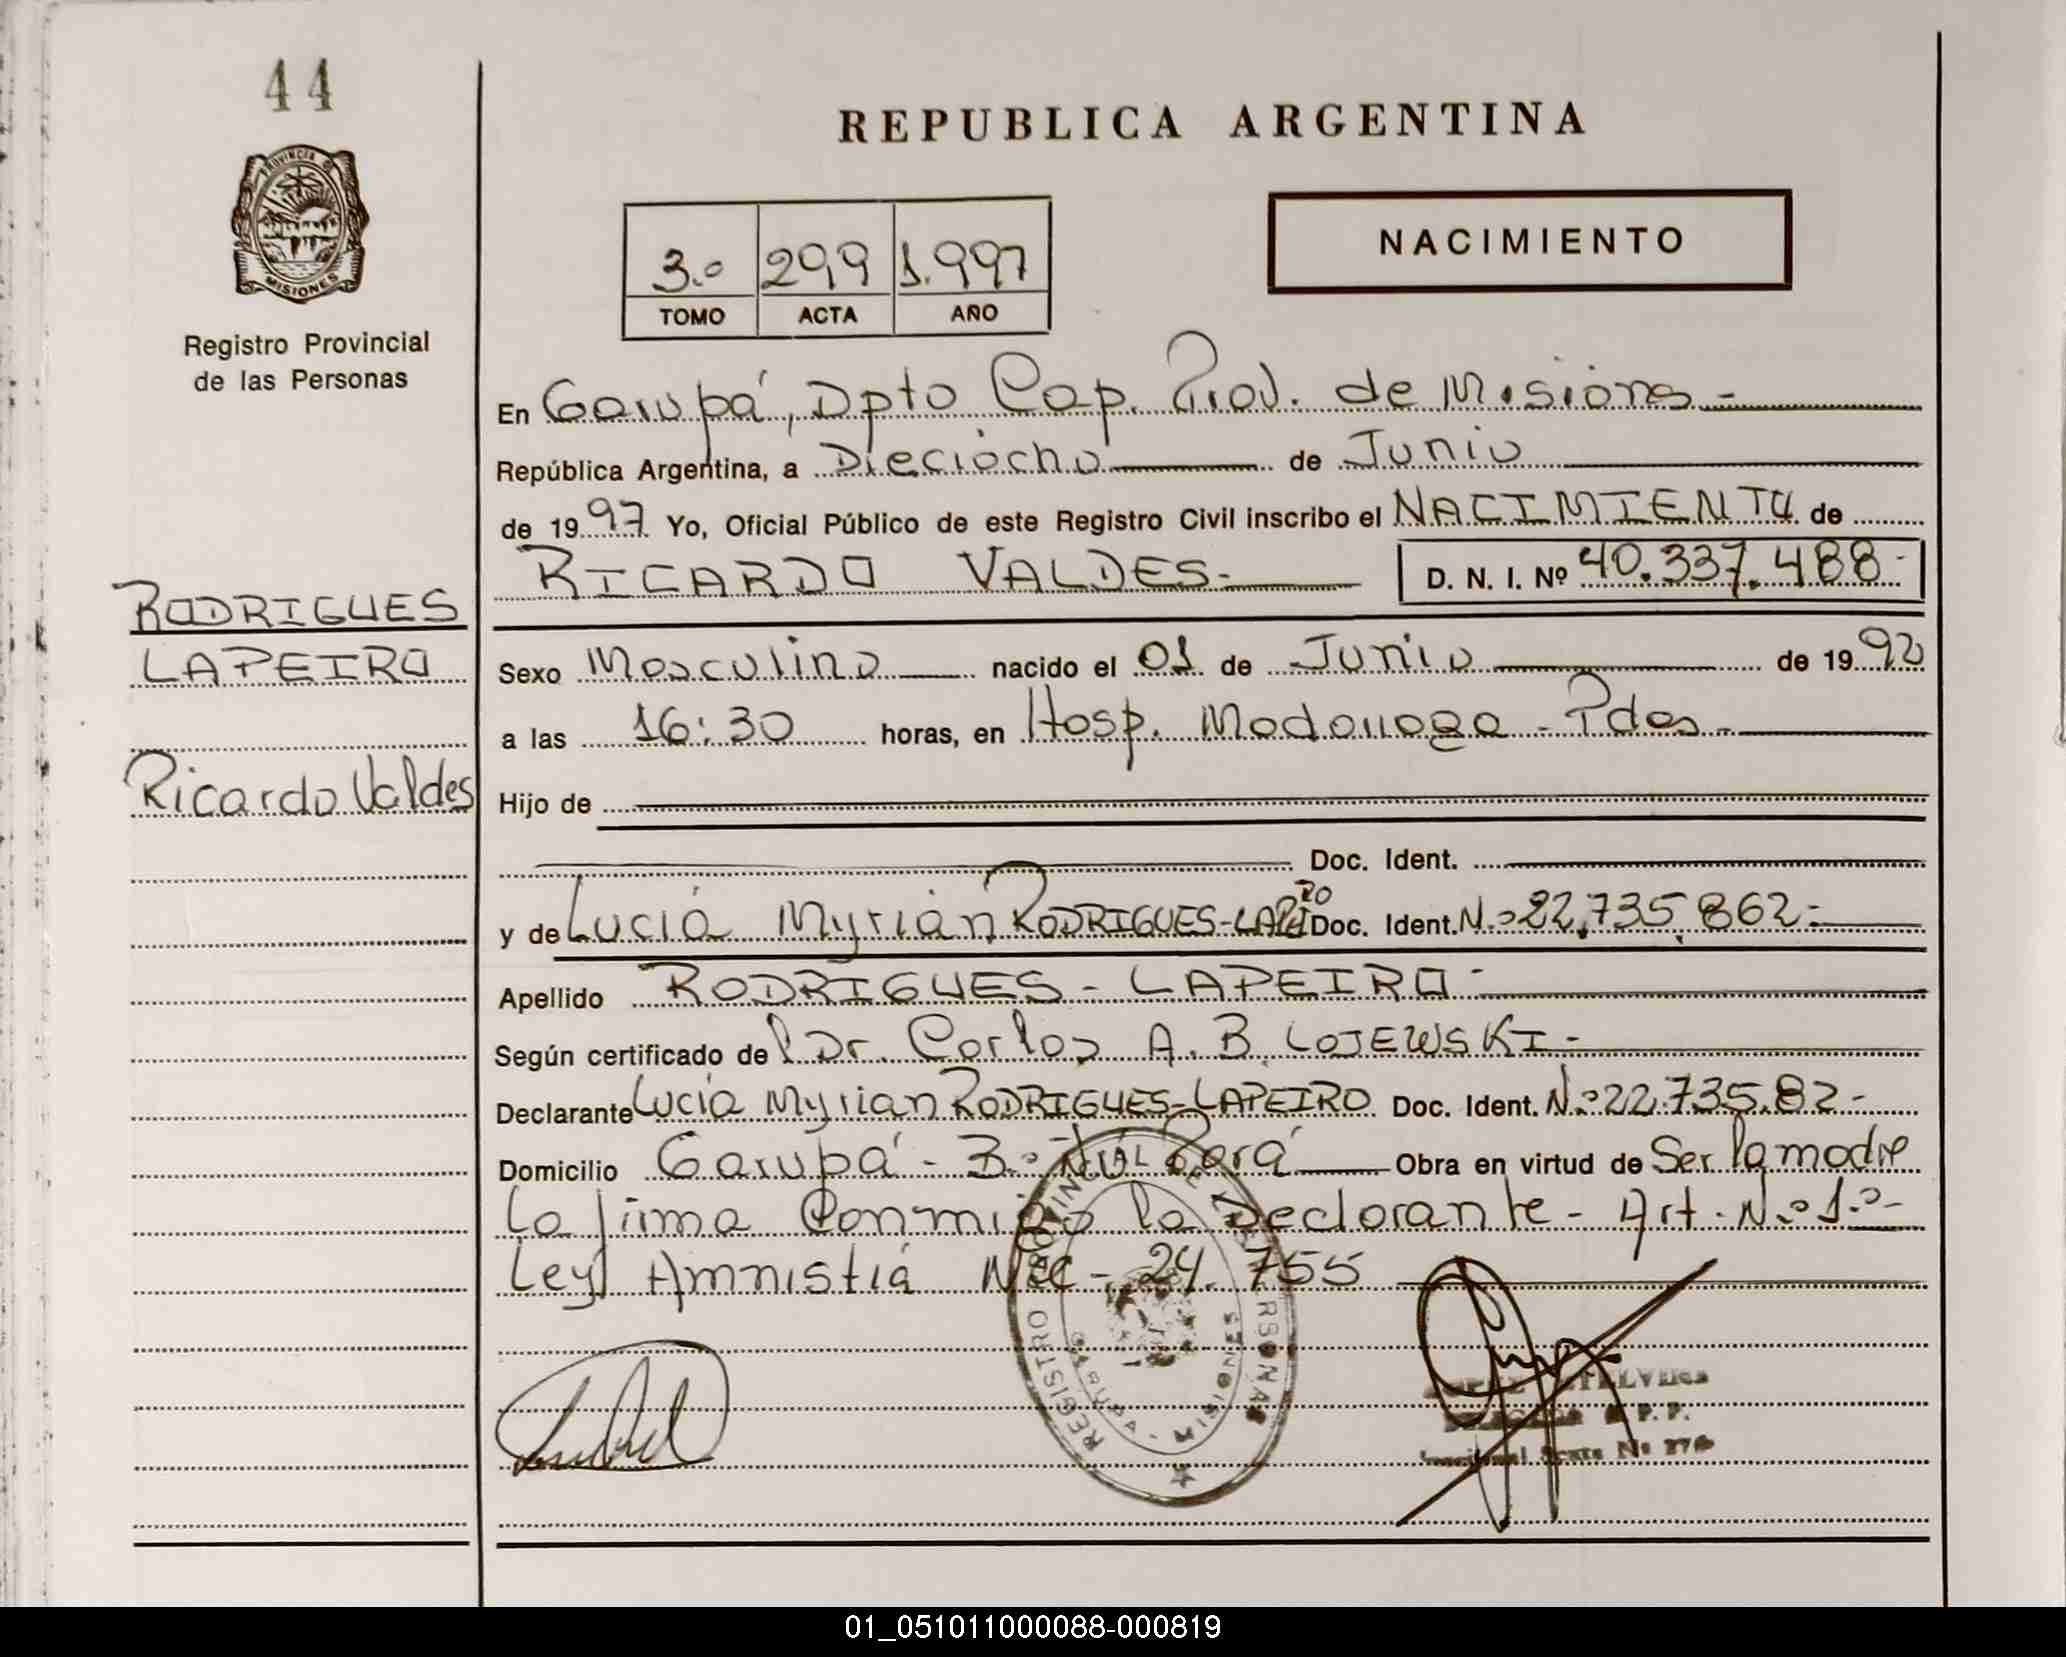 44
PROVINCIA DE
MISIONES
Registro Provincial
de las Personas
RODRIGUES
LAPEIRO
Ricardo Valdes
REPUBLICA ARGENTINA
3.º 299 1.997
TOMO ACTA AÑO
NACIMIENTO
En Garupá, Dpto Cap. Prov. de Misiones -
República Argentina, a Dieciocho de Junio
de 1997 Yo, Oficial Público de este Registro Civil inscribo el NACIMIENTO de
RICARDO VALDES - D. N. I. Nº 40.337.488-
Sexo Masculino nacido el 01 de Junio de 1992
a las 16:30 horas, en Hosp. Madariaga - Pdas -
Hijo de
Doc. Ident.
y de Lucia Myrian RODRIGUES-LAPEIRO Doc. Ident. N.º 22.735.862-
Apellido RODRIGUES - LAPEIRO -
Según certificado del Dr. Carlos A. B. LOJEWSKI -
Declarante Lucia Myrian RODRIGUES-LAPEIRO Doc. Ident. N.º 22.735.82-
Domicilio Garupá - B.º Ñú Porá Obra en virtud de Ser la madre
La firma Conmigo la Declarante - Art. N.º 1.º-
Ley Amnistia 24.755
REGISTRO PROVINCIAL DE LAS PERSONAS
GARUPA - MISIONES
R. P. P.
Nº 276
01_051011000088-000819